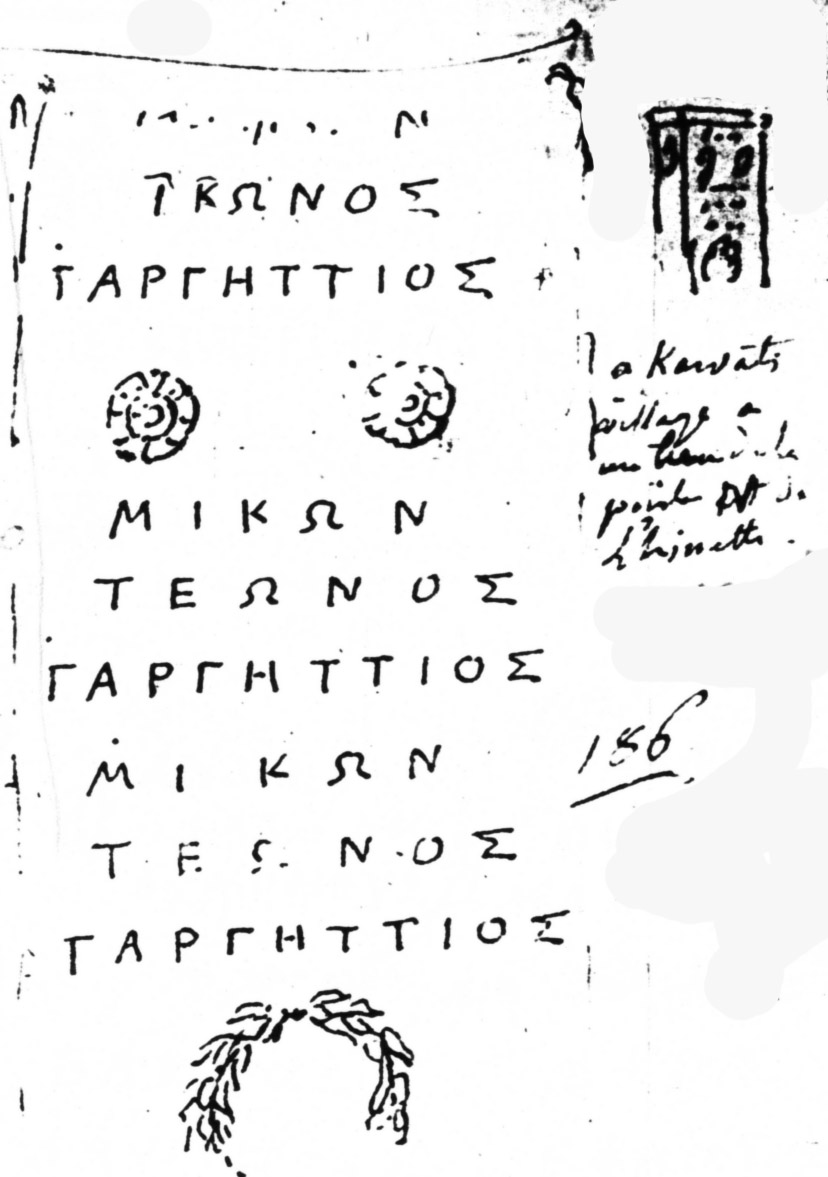 Ν
ΤΚΩΝΟΣ
ΓΑΡΓΗΤΤΙΟΣ
ΜΙΚΩΝ
ΤΕΩΝΟΣ
ΓΑΡΓΗΤΤΙΟΣ
ΜΙΚΩΝ
ΤΕΩΝΟΣ
ΓΑΡΓΗΤΤΙΟΣ
a Karvati
village a
de
l'himette.
186